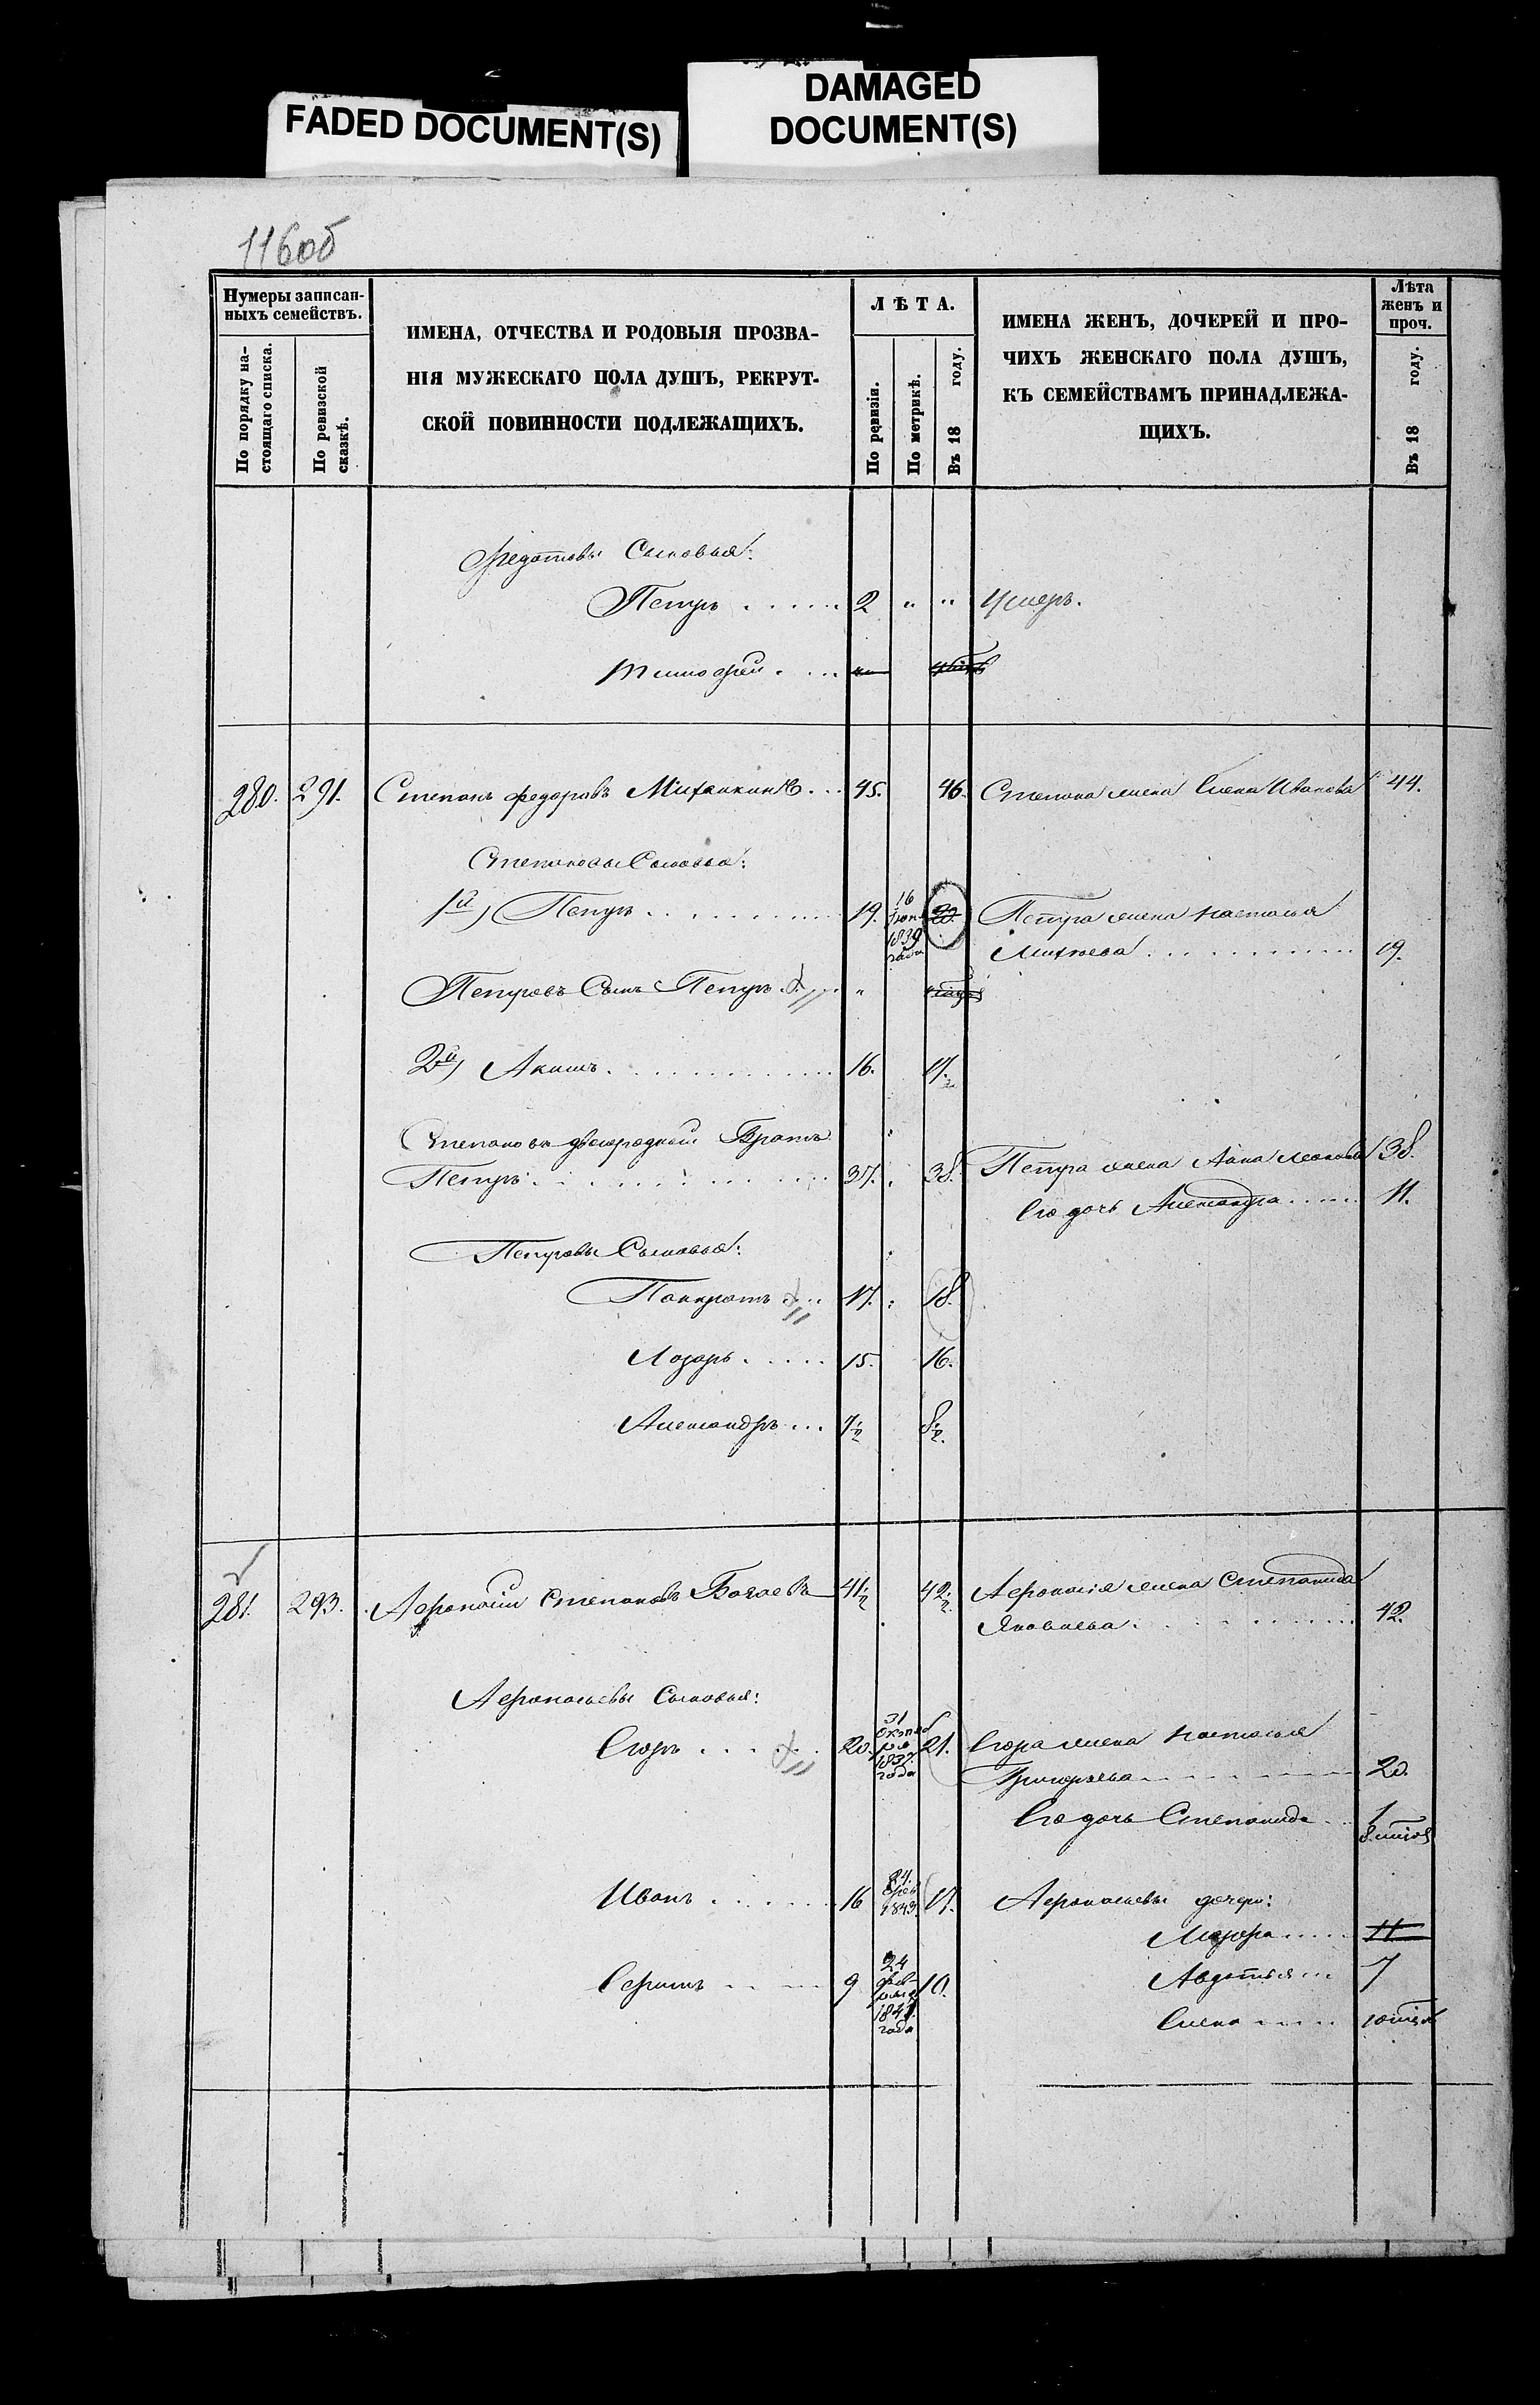 FADED DOCUMENT(S)
DAMAGED
DOCUMENT(S)
116об
Нумеры записан-
ныхъ семействъ.
По порядку на-
стоящаго списка.
По ревизской
сказкѣ.
ИМЕНА, ОТЧЕСТВА И РОДОВЫЯ ПРОЗВА-
НІЯ МУЖЕСКАГО ПОЛА ДУШЪ, РЕКРУТ-
СКОЙ ПОВИННОСТИ ПОДЛЕЖАЩИХЪ.
ЛѢТА.
По ревизіи.
По метрикѣ.
Въ 18 году.
ИМЕНА ЖЕНЪ, ДОЧЕРЕЙ И ПРО-
ЧИХЪ ЖЕНСКАГО ПОЛА ДУШЪ,
КЪ СЕМЕЙСТВАМЪ ПРИНАДЛЕЖА-
ЩИХЪ.
Лѣта
женъ и
проч.
Въ 18 году.
Федотовы Сыновья:
Петръ 2 " " Умеръ.
Тимофей
280. 291. Степанъ Федоровъ 45. 46. Степана жена Елена Иванова 44.
Степановы Сыновья:
1й) Петръ 19. 16 1839 года 20. Петра жена Настасья
19.
Петровъ Сынъ Петръ "
2й) Акимъ 16. 17.
Степановъ двоюродной Братъ
Петръ 37. 38. Петра жена Анна 38.
Его дочь Александра 11.
Петровы Сыновья:
Панкратъ 17. 18.
Лазарь 15. 16.
Александръ 7½ 8½.
281. 293. Афонасій Степановъ 41½ 42½ Афонасія жена Степанида
Яковлева 42.
Афонасьевы Сыновья:
Егоръ 20. 31 Октяб ря 1837. года 21. Егора жена Настасья
Григорьева 20.
Его дочь Степанида 1
Иванъ 16 24. 1843. 17. Афонасьевы дочери:
11
Ефимъ 9 24 фев- раля года 10. Авдотья 7
Елена